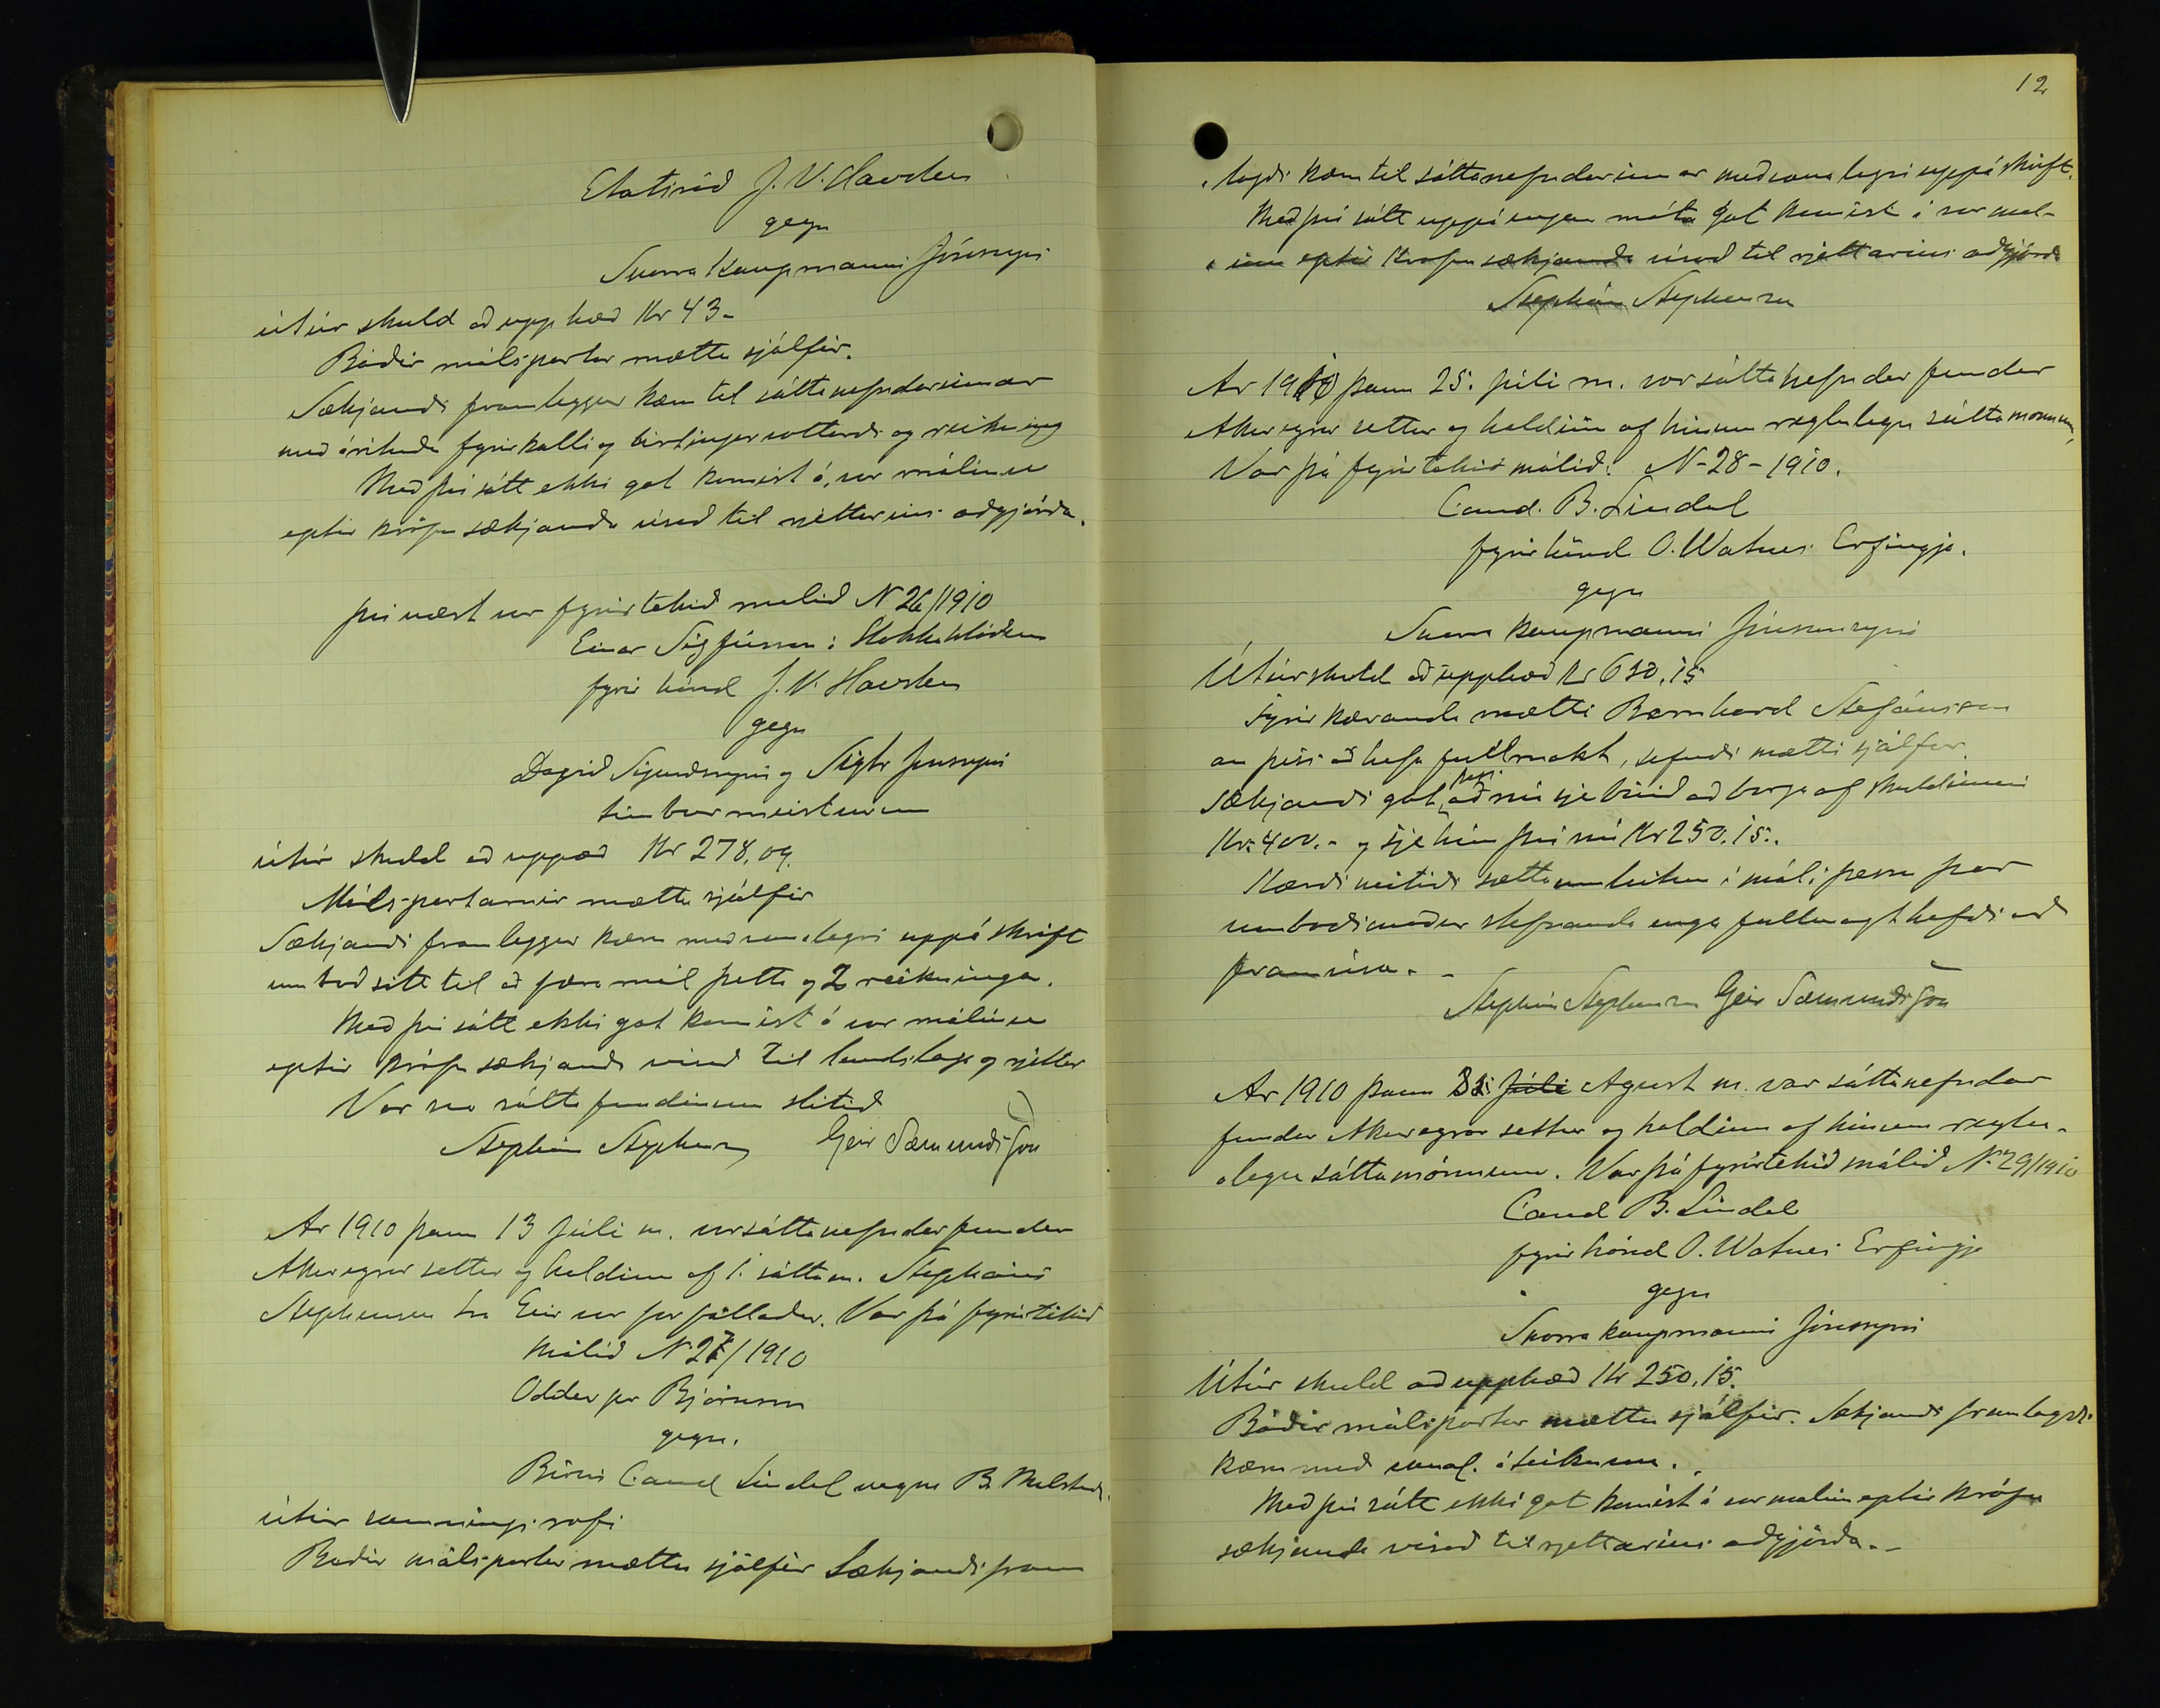 Etatsráð J. V. Havsteen
gegn
Snorra Kaupmanni Jónssyni
útúr skuld að upphæð Kr 43-
Báðir málspartar mættu sjálfir.
Sækjandi framleggur kæru til sáttanefndarinnar
með árituðu fyrirkalli og birtingarvottorði og reikning
Með því sátt ekki gat komist á, var málinu
eptir kröfu sækjanda vísað til rjettarins aðgjörða.
því næst var fyrirtekið málið N 26/1910
Einar Sigfússon: Stokkahlöðum
fyrir hönd J. V. Havsteen
gegn
Davíð Sigurðssyni og Sigtr Jónssyni
timburmeisturum
útúr skuld að uppæð Kr 278,09.
Málspartarnir mættu sjálfir
Sækjandi framleggur kæru með venulegri uppáskrift
umboð sitt til að færa mál þetta og 2 reikninga.
Með því sátt ekki gat komist á var málinu
eptir kröfu sækjanda vísað til landslaga og rjettar
Var svo sáttafundinum slitið
Stephán Stephensen Geir Sæmundsson
Ar 1910 þann 13 Júli m. var sáttanefndarfundur
Akureyrar settur og haldinn af 1. sáttam. Stepháni
Stephensen Sra Geir var forfallaður. Var þá fyrirtekið
málið N 27/1910
Oddur pr Björnsson
gegn.
Birni Cand Líndal vegna B. Melsteds.
útúr samningsrofi
Baðir málspartar mættu sjálfir Sækjandi fram
12
-lagði kæru til sáttanefndarinnar með venulegri uppáskrift.
Með því sátt uppá engan máta gat komist á var mál-
-inu eptir kröfu sækjanda vísað til rjettarins aðgjörða
Stephán Stephensen
Ar 1910 þann 25. júli m. var sáttanefndar fundur
Akureyrar settur og haldinn af hinum reglulegu sáttamönnum,
Var þá fyrirtekið málið: N-28-1910.
Cand. B. Líndal
fyrir hönd O. Wathnes Erfingja.
gegn
Snorra kaupmanni Jónssonsyni
Útúrskuld að upphæð Kr 650,15
fyrir kæranda mætti Bernhard Stefánsson
án þess að hafa fullmakt, sefndi mætti sjálfur.
Sækjandi gat þess að nú sje búið að borga af skuldinni
Kr. 400.- og sje hún því nú Kr 250.15..
Kærði neitaði sættaumleitun í máli þessu þar
umboðsmaður stefnanda enga fullmagt hafði að
framvísa. -
Stephán Stephensen Geir Sæmundsson
Ar 1910 þann 2. Júli Agust m. var sáttanefndar
fundur Akureyrar settur og haldinn af hinum reglu-
-legu sáttamönnum. Var þá fyrirtekið málið N. 29/1910
Cand B. Líndal
fyrir hönd O. Wathnes Erfingja
gegn
Snorra kaupmanni Jónssyni
Útúr skuld að upphæð Kr 250,15.
Báðir málspartar mættu sjálfir. Sækjandi framlagði
kæru með venul. áteiknun.
Með því sátt ekki gat komist á var malinu eptir kröfu
sækjanda vísað til rjettarins aðgjörða.-